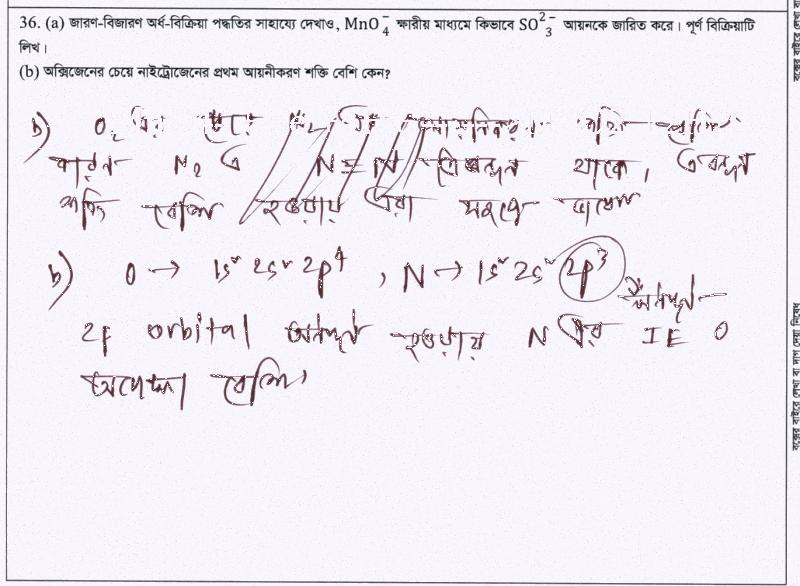 36. (a) জারণ-বিজারণ অর্ধ-বিক্রিয়া পদ্ধতির সাহায্যে দেখাও, MnO₄⁻ ক্ষারীয় মাধ্যমে কিভাবে SO₃²⁻ আয়নকে জারিত করে। পূর্ণ বিক্রিয়াটি
লিখ।
(b) অক্সিজেনের চেয়ে নাইট্রোজেনের প্রথম আয়নীকরণ শক্তি বেশি কেন?
b) O₂ এর চেয়ে N₂ এর শক্তি বেশি
কারণ N₂ এ N≡N ত্রিবন্ধন থাকে, এ বন্ধন
শক্তি বেশি হওয়ায় এরা সহজে
b) O → 1s² 2s² 2p⁴ , N → 1s² 2s² 2p³
অর্ধপূর্ণ
2p orbital অর্ধপূর্ণ হওয়ায় N এর IE O
অপেক্ষা বেশি।
বক্সের বাইরে লেখা বা দাগ দেয়া নিষেধ